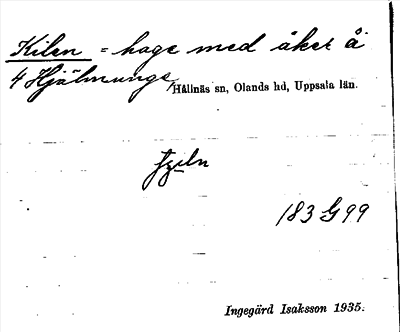 Kilen = hage med åker å
4 Hjälmunge
Hållnäs sn, Olands hd, Uppsala län.
183 G 99
Ingegärd Isaksson 1935.